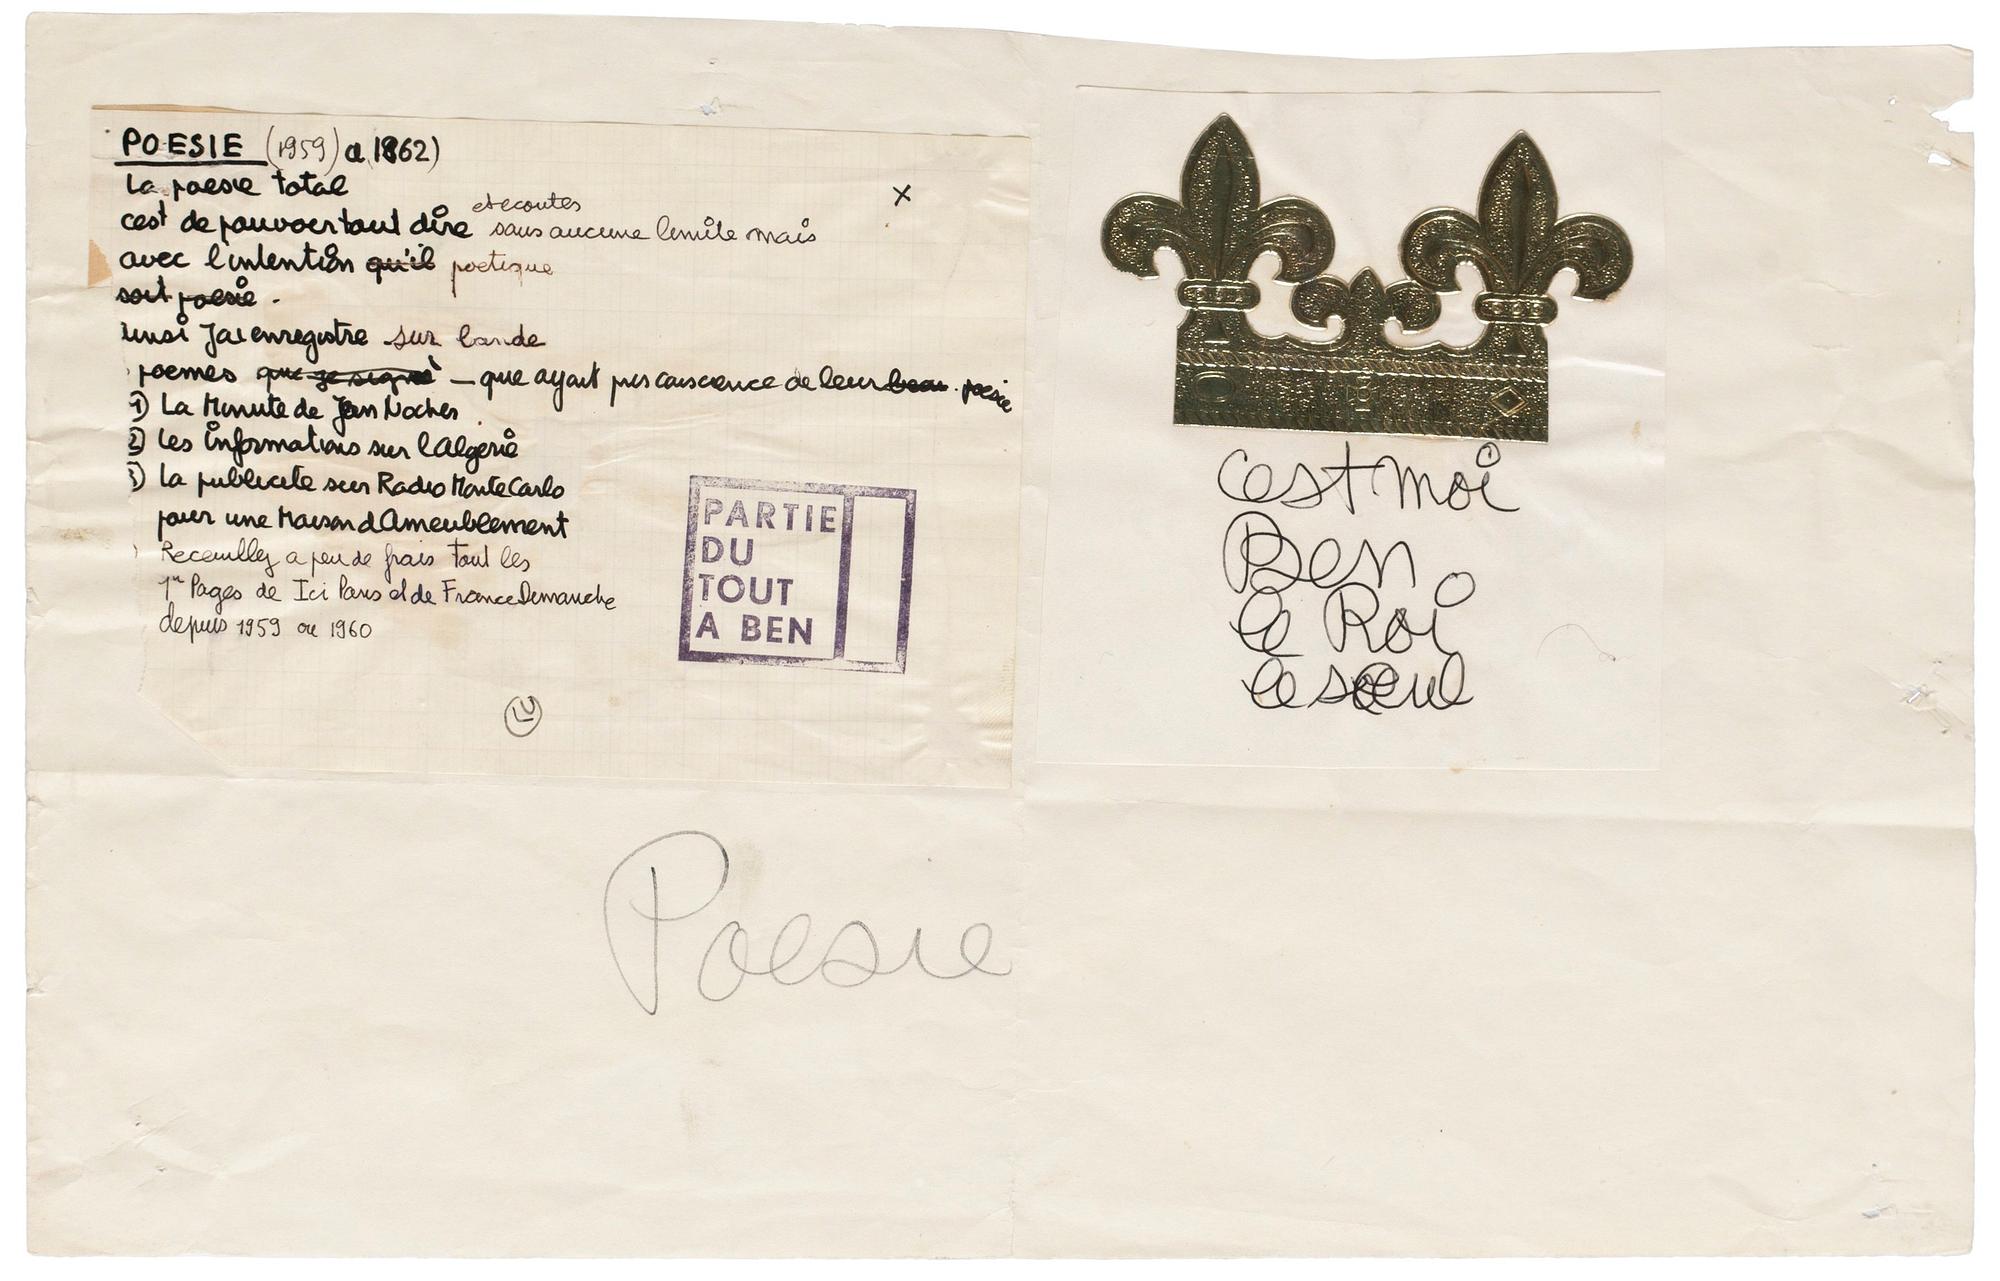 POESIE (1959) a 1962)
La poesie total
cest de pouvoir tout dire et ecoutes sans aucune limite mais
avec l'intention qu'il poetique
soit poesie.
ainsi J'ai enregistre sur bande
poemes que je signé — que ayant pris conscience de leur beau poesie
1) La Minute de Jean Nocher
2) Les informations sur l'Algerie
3) La publicite sur Radio Monte Carlo
pour une Maison d'Ameublement
Receuilley a peu de frais tout les
1er Pages de Ici Paris et de France Dimanche
depuis 1959 ou 1960
X
PARTIE
DU
TOUT
A BEN
cest moi
Ben
le Roi
le seul
Poesie